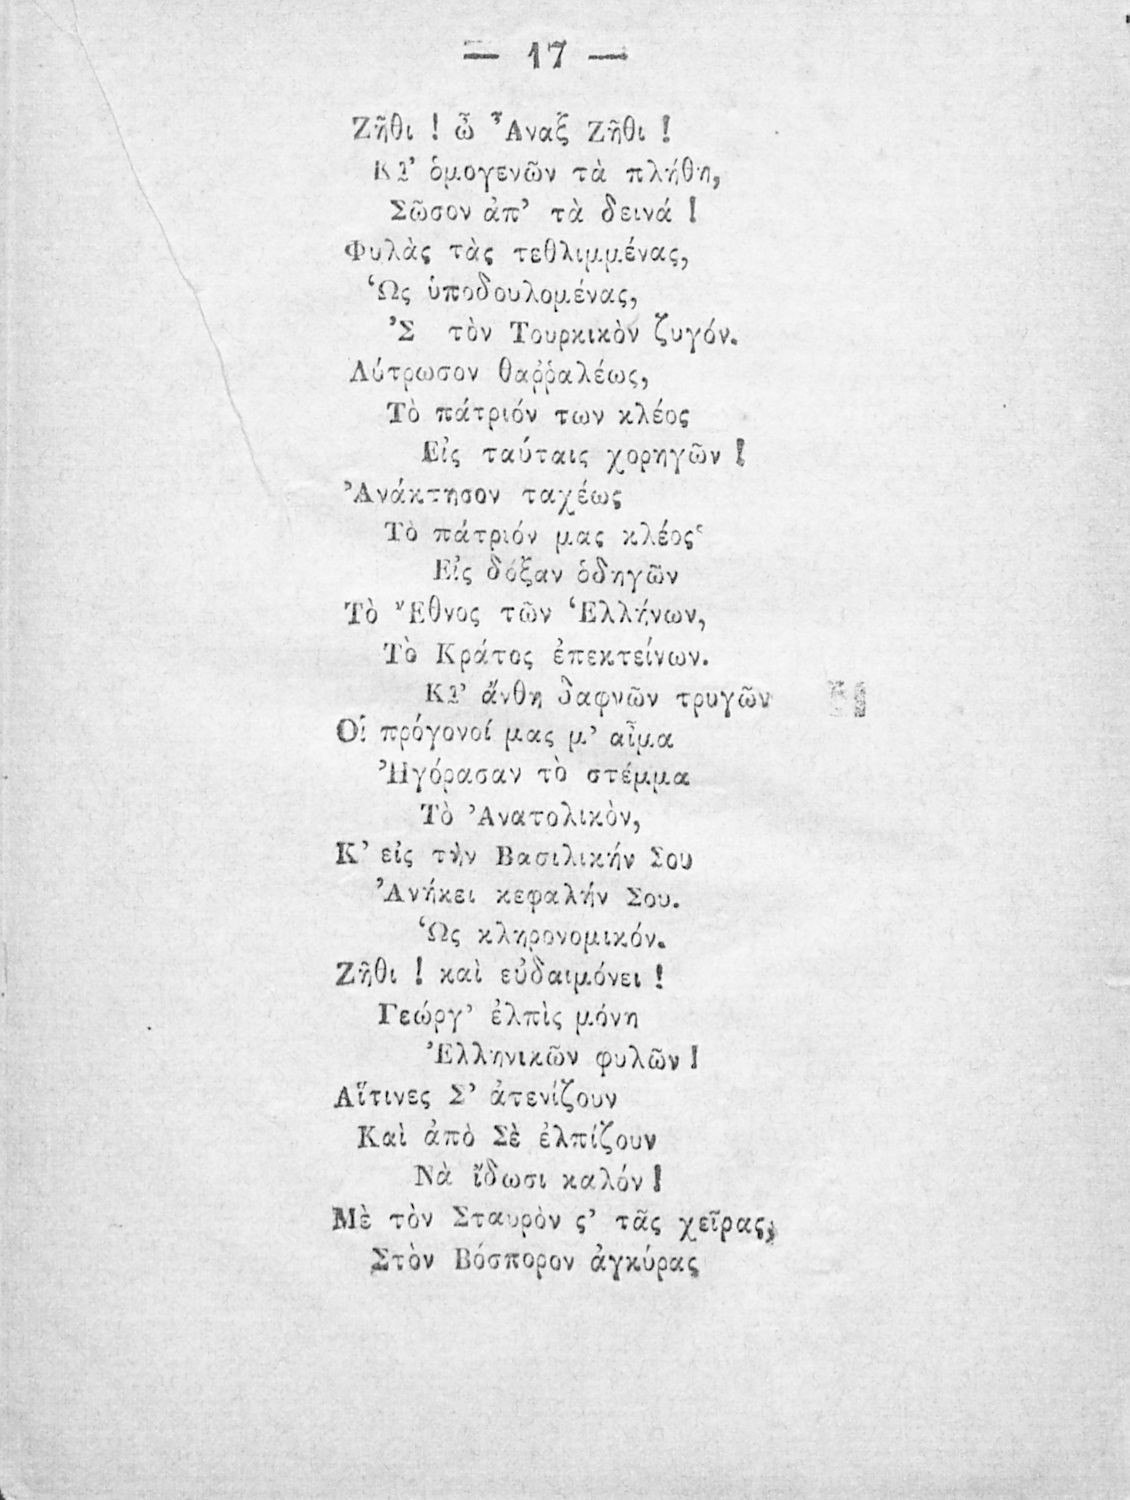 — 17 —
Ζῆθι ! ὦ Ἄναξ Ζῆθι !
Κι’ ὁμογενῶν τὰ πλήθη,
Σῶσον ἀπ’ τὰ δεινά !
Φυλὰς τὰς τεθλιμμένας,
Ὡς ὑποδουλομένας,
’Σ τὸν Τουρκικὸν ζυγόν.
Λύτρωσον θαῤῥαλέως,
Τὸ πάτριόν των κλέος
Εἰς ταύταις χορηγῶν !
Ἀνάκτησον ταχέως
Τὸ πάτριόν μας κλέος·
Εἰς δόξαν ὁδηγῶν
Τὸ Ἔθνος τῶν Ἑλλήνων,
Τὸ Κράτος ἐπεκτείνων.
Κι’ ἄνθη δαφνῶν τρυγῶν
Οἱ πρόγονοί μας μ’ αἷμα
Ἠγόρασαν τὸ στέμμα
Τὸ Ἀνατολικὸν,
Κ’ εἰς τὴν Βασιλικήν Σου
Ἀνήκει κεφαλήν Σου.
Ὡς κληρονομικόν.
Ζῆθι ! καὶ εὐδαιμόνει !
Γεώργ’ ἐλπὶς μόνη
Ἑλληνικῶν φυλῶν !
Αἵτινες Σ’ ἀτενίζουν
Καὶ ἀπὸ Σὲ ἐλπίζουν
Νὰ ἴδωσι καλόν !
Μὲ τὸν Σταυρὸν ς’ τᾶς χεῖρας,
Στὸν Βόσπορον ἀγκύρας